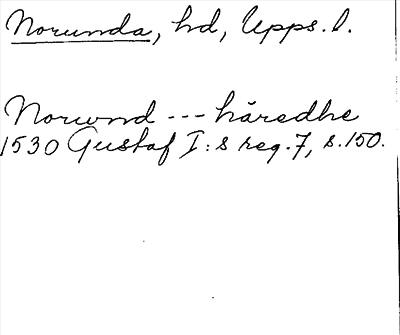 Norunda, hd, Upps. l.
Norwnd --- häredhe
1530 Gustaf I:s reg. 7, s. 150.